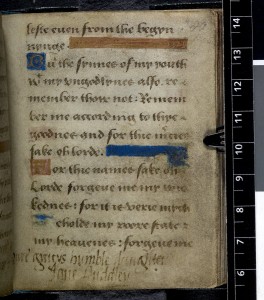 leste even from the begyn
nynge
On the synnes of my youth
wt my ungodlynes also re
member thow not: Remem
ber me according to thye
goodnes and for thie mcies
sake oh lorde:
For thie names sake oh
Lorde forgeve me my wic
kednes: for it is verie myche
Beholde my poore state
my heavenes: forgeve me
graces humble daughter
Jane Duddley
14
13
12
11
10
9
8
7
6